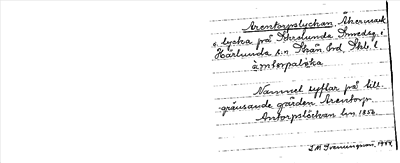 Arentorpslyckan, Åkermark
o. lycka på Skrolunda Smedsg. i
Härlunda s:n Skån. hd Skbl. l.
àrntorpalöka
Namnet syftar på till-
gränsande gården Arentorp
Antorpslöckan lm 1856.
J M Svenningson, 1954.